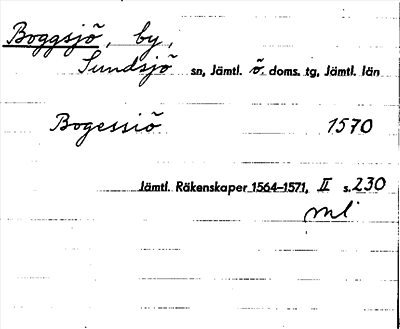 Boggsjö, by,
Sundsjö sn, Jämtl. ö. doms. tg, Jämtl. län
Bogessiö 1570
Jämtl. Räkenskaper 1564-1571, II s. 230
ml